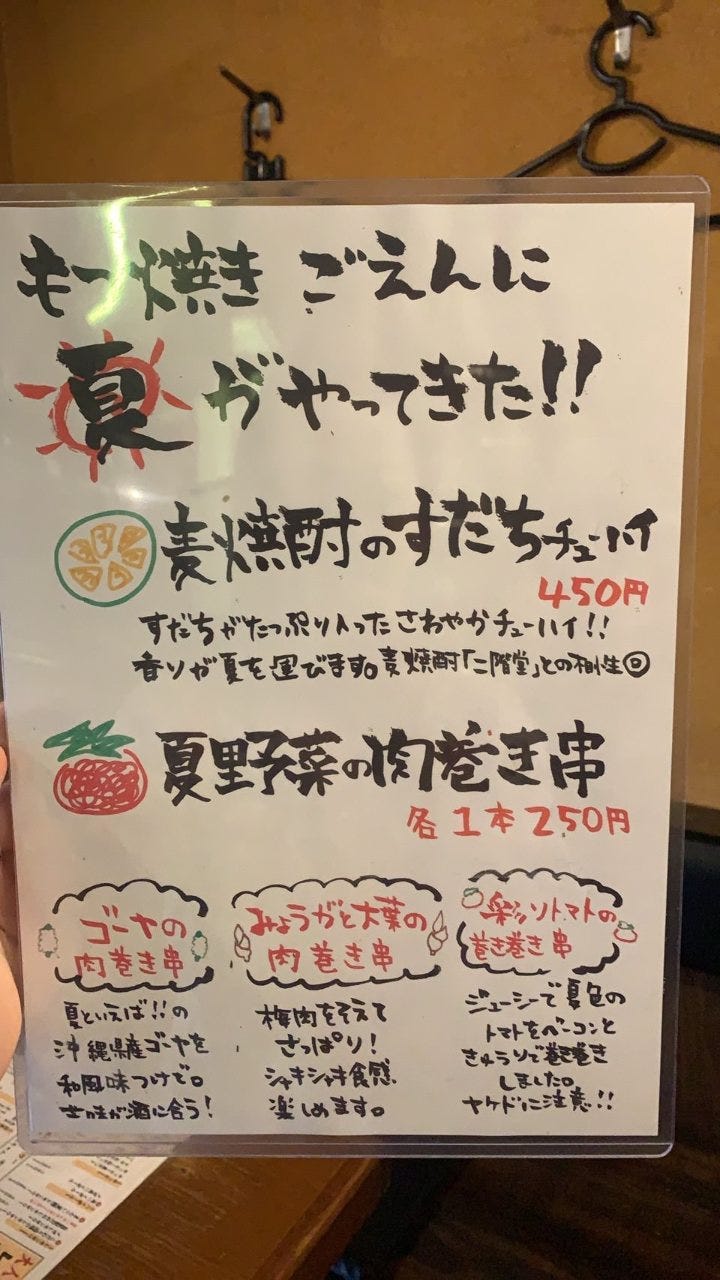 もつ焼き ごえんに
夏がやってきた!!
麦焼酎のすだちチューハイ
450円
すだちがたっぷり入ったさわやかチューハイ!!
香りが夏を運びます。麦焼酎「二階堂」との相性◎
夏野菜の肉巻き串
各1本250円
ゴーヤの
肉巻き串
夏といえば!!の
沖縄県産ゴーヤを
和風味つけで。
苦味が酒に合う!
みょうがと大葉の
肉巻き串
梅肉をそえて
さっぱり!
シャキシャキ食感
楽しめます。
彩りトマトの
巻き巻き串
ジューシーで夏色の
トマトをベーコンと
きゅうりで巻き巻き
しました。
ヤケドに注意!!